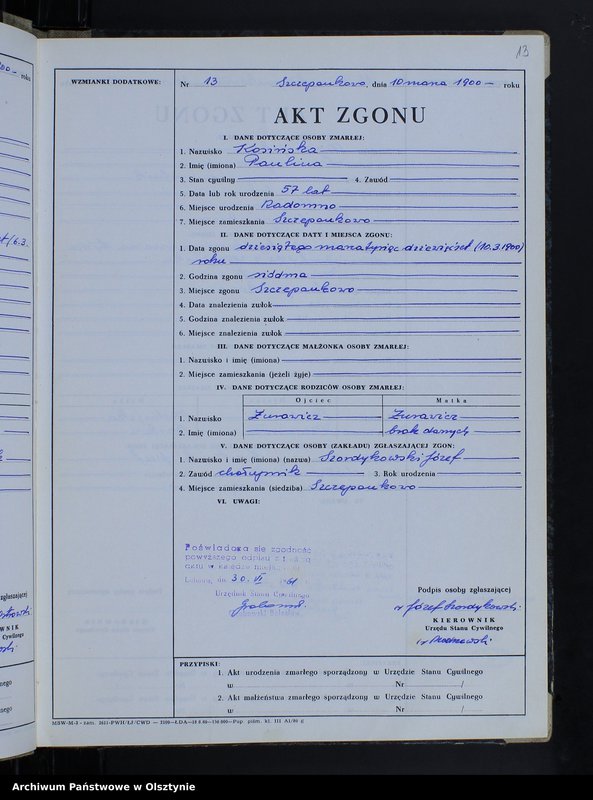 13
WZMIANKI DODATKOWE:
Nr 13 Szczepankowo, dnia 10 marca 1900 - roku
AKT ZGONU
I. DANE DOTYCZĄCE OSOBY ZMARŁEJ:
1. Nazwisko Kosińska
2. Imię (imiona) Paulina
3. Stan cywilny 4. Zawód
5. Data lub rok urodzenia 57 lat
6. Miejsce urodzenia Radomno
7. Miejsce zamieszkania Szczepankowo
II. DANE DOTYCZĄCE DATY I MIEJSCA ZGONU:
1. Data zgonu dziesiątego marca tysiąc dziewięćset (10.3.1900)
roku
2. Godzina zgonu siódma
3. Miejsce zgonu Szczepankowo
4. Data znalezienia zwłok
5. Godzina znalezienia zwłok
6. Miejsce znalezienia zwłok
III. DANE DOTYCZĄCE MAŁŻONKA OSOBY ZMARŁEJ:
1. Nazwisko i imię (imiona)
2. Miejsce zamieszkania (jeżeli żyje)
IV. DANE DOTYCZĄCE RODZICÓW OSOBY ZMARŁEJ:
Ojciec Matka
1. Nazwisko Żurawicz Żurawicz
2. Imię (imiona) brak danych
V. DANE DOTYCZĄCE OSOBY (ZAKŁADU) ZGŁASZAJĄCEJ ZGON:
1. Nazwisko i imię (imiona) (nazwa) Szordykowski Józef
2. Zawód chałupnik 3. Rok urodzenia
4. Miejsce zamieszkania (siedziba) Szczepankowo
VI. UWAGI:
Poświadcza się zgodność
powyższego odpisu z treścią
aktu w księdze
dn. 30. VI 1961
Urzędnik Stanu Cywilnego
Podpis osoby zgłaszającej
Józef Szordykowski
KIEROWNIK
Urzędu Stanu Cywilnego
PRZYPISKI:
1. Akt urodzenia zmarłego sporządzony w Urzędzie Stanu Cywilnego
w Nr /
2. Akt małżeństwa zmarłego sporządzony w Urzędzie Stanu Cywilnego
w Nr /
Archiwum Państwowe w Olsztynie